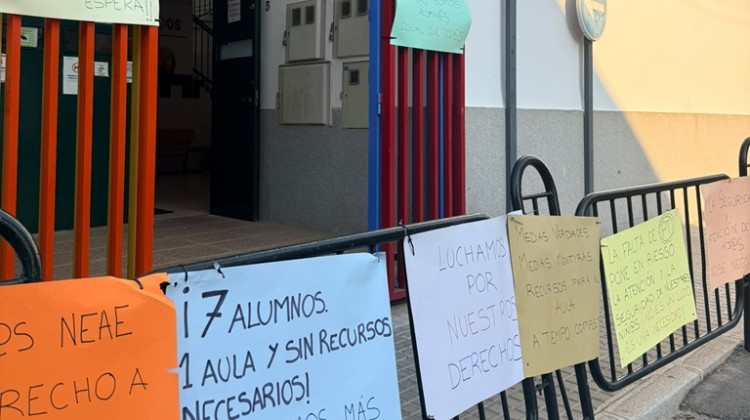 ESPERA!!
ALUMNOS
IGUAL QUE
@S NEAE
DERECHO A
¡7 ALUMNOS.
1 AULA Y SIN RECURSOS
NECESARIOS!
MÁS
LUCHAMOS
POR
NUESTROS
DERECHOS
MEDIAS VERDADES.
MEDIAS MENTIRAS
RECURSOS PARA EL
AULA
A TIEMPO COMPLETO
LA FALTA DE PT
PONE EN RIESGO
LA ATENCIÓN Y LA
SEGURIDAD DE NUESTROS
NIÑOS. NO ES UN LUJO
ES UNA NECESIDAD
LA SEGURIDAD